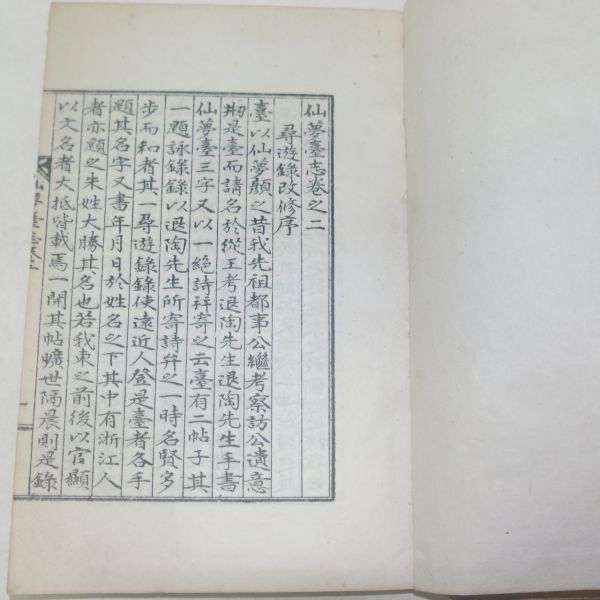 仙夢臺志卷之二
尋遊錄改修序
臺以仙夢顯之昔我先祖都事公繼考察訪公遺意
刱是臺而請名於從王考退陶先生退陶先生手書
仙夢臺三字又以一絶詩拜寄之云臺有二帖子其
一題詠錄錄以退陶先生所寄詩弁之一時名賢多
步而和者其一尋遊錄錄使遠近人登是臺者各手
題其名字又書年月日於姓名之下其中有浙江人
者亦題之朱姓大勝其名也若我東之前後以官顯
以文名者大抵皆載焉一開其帖曠世隔晨則是錄